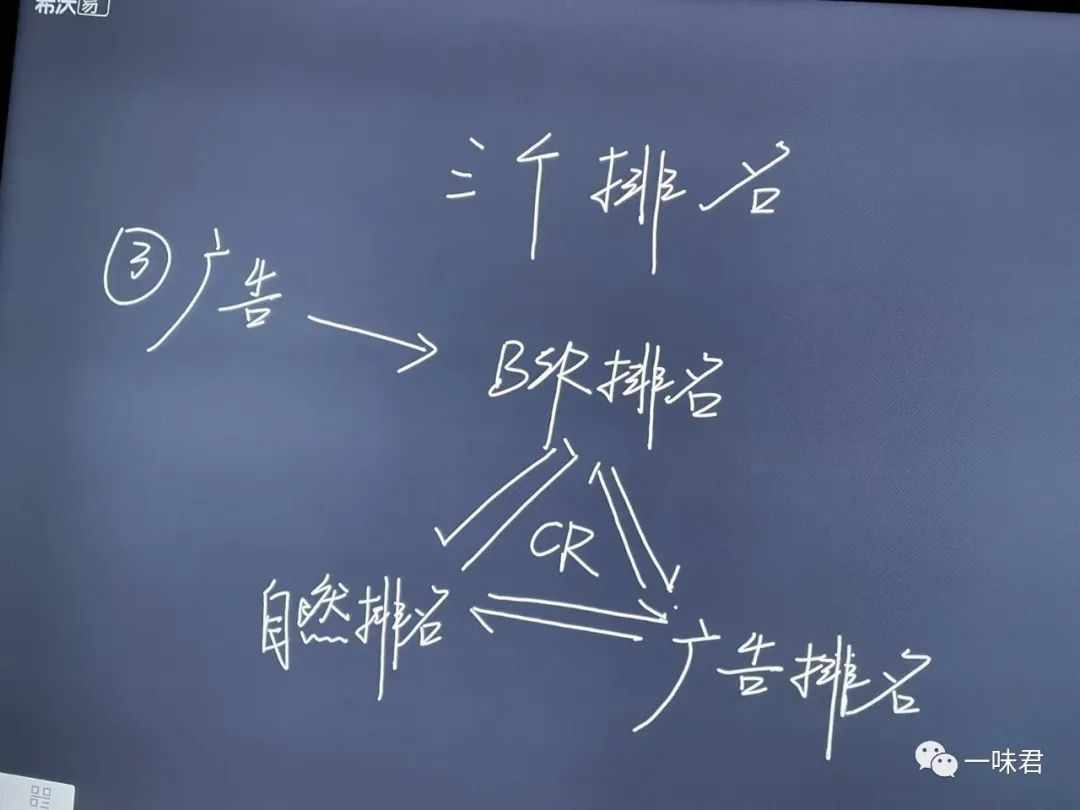 希沃易
三个排名
③广告
BSR排名
CR
自然排名
广告排名
一味君